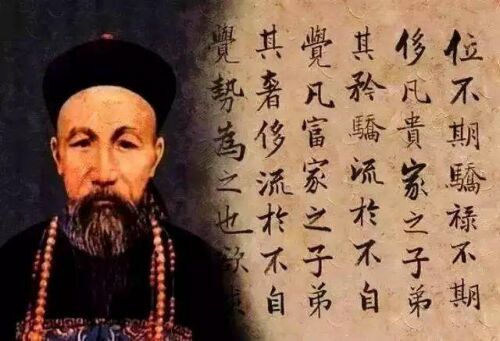 位不期驕禄不期
侈凡貴家之子弟
其矜驕流於不自
覺凡富家之子弟
其奢侈流於不自
覺勢為之也欲